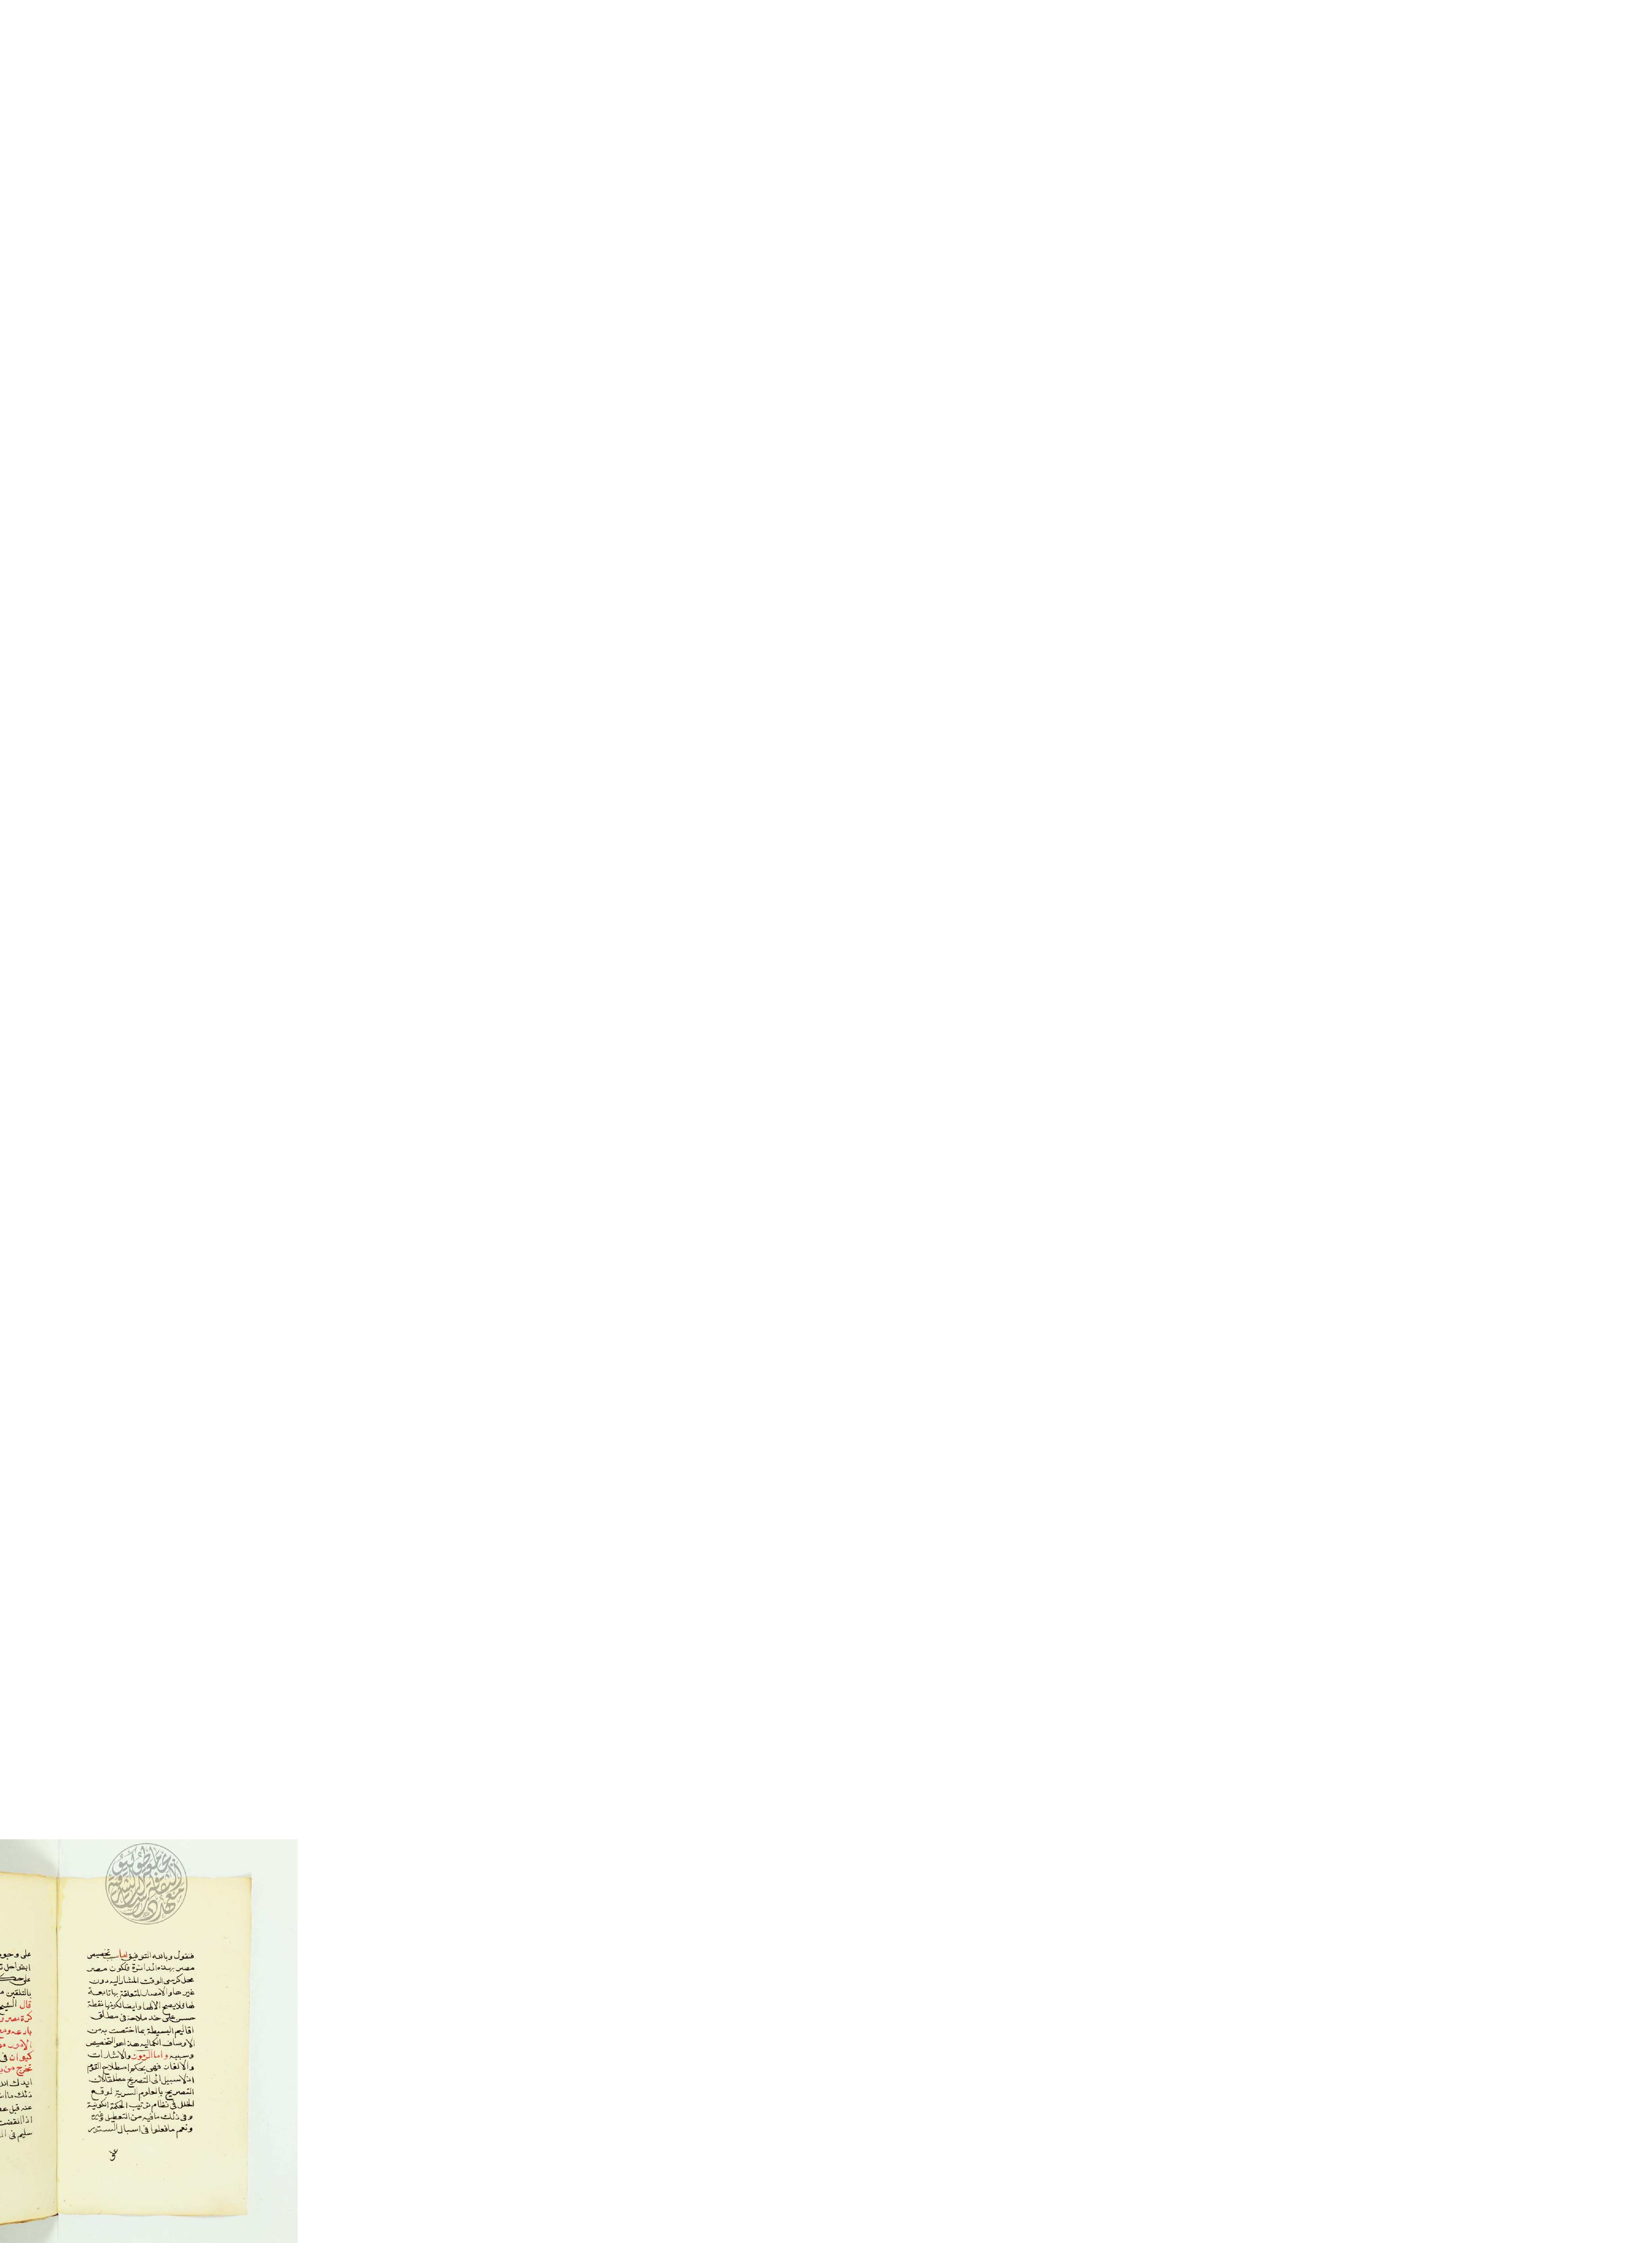 فنقول وبالله التوفيق اما سبب تخصيص
مصر بهذه الدائرة فلكون مصر
محل كرسى الوقت المشار اليه دون
غيرها والامصار المتعلقة بها تابعة
لها فلا يصح الا لها وايضا لكونها نقطة
حسن على خد ملاحة فى مطلق
اقاليم البسيطة بما اختصت به من
الاوصاف الكماليه هذا هو التخصيص
وسببه واما الرموز والاشارات
والالغاز فهى بحكم اصطلاح القوم
اذ لا سبيل الى التصريح مطلقا لان
التصريح بالعلوم السرية لوقع
الخلل فى نظام ترتيب الحكمة الكونية
وفى ذلك ما فيه من التعطيل
ونعم ما فعلوا فى اسبال الستر
على وجو
على حك
بالتلقين
قال الشيخ
كرة مصر
كيوان فى
تخرج من
ذلك ما
عنه قبل
اذا انقضت
سليم فى